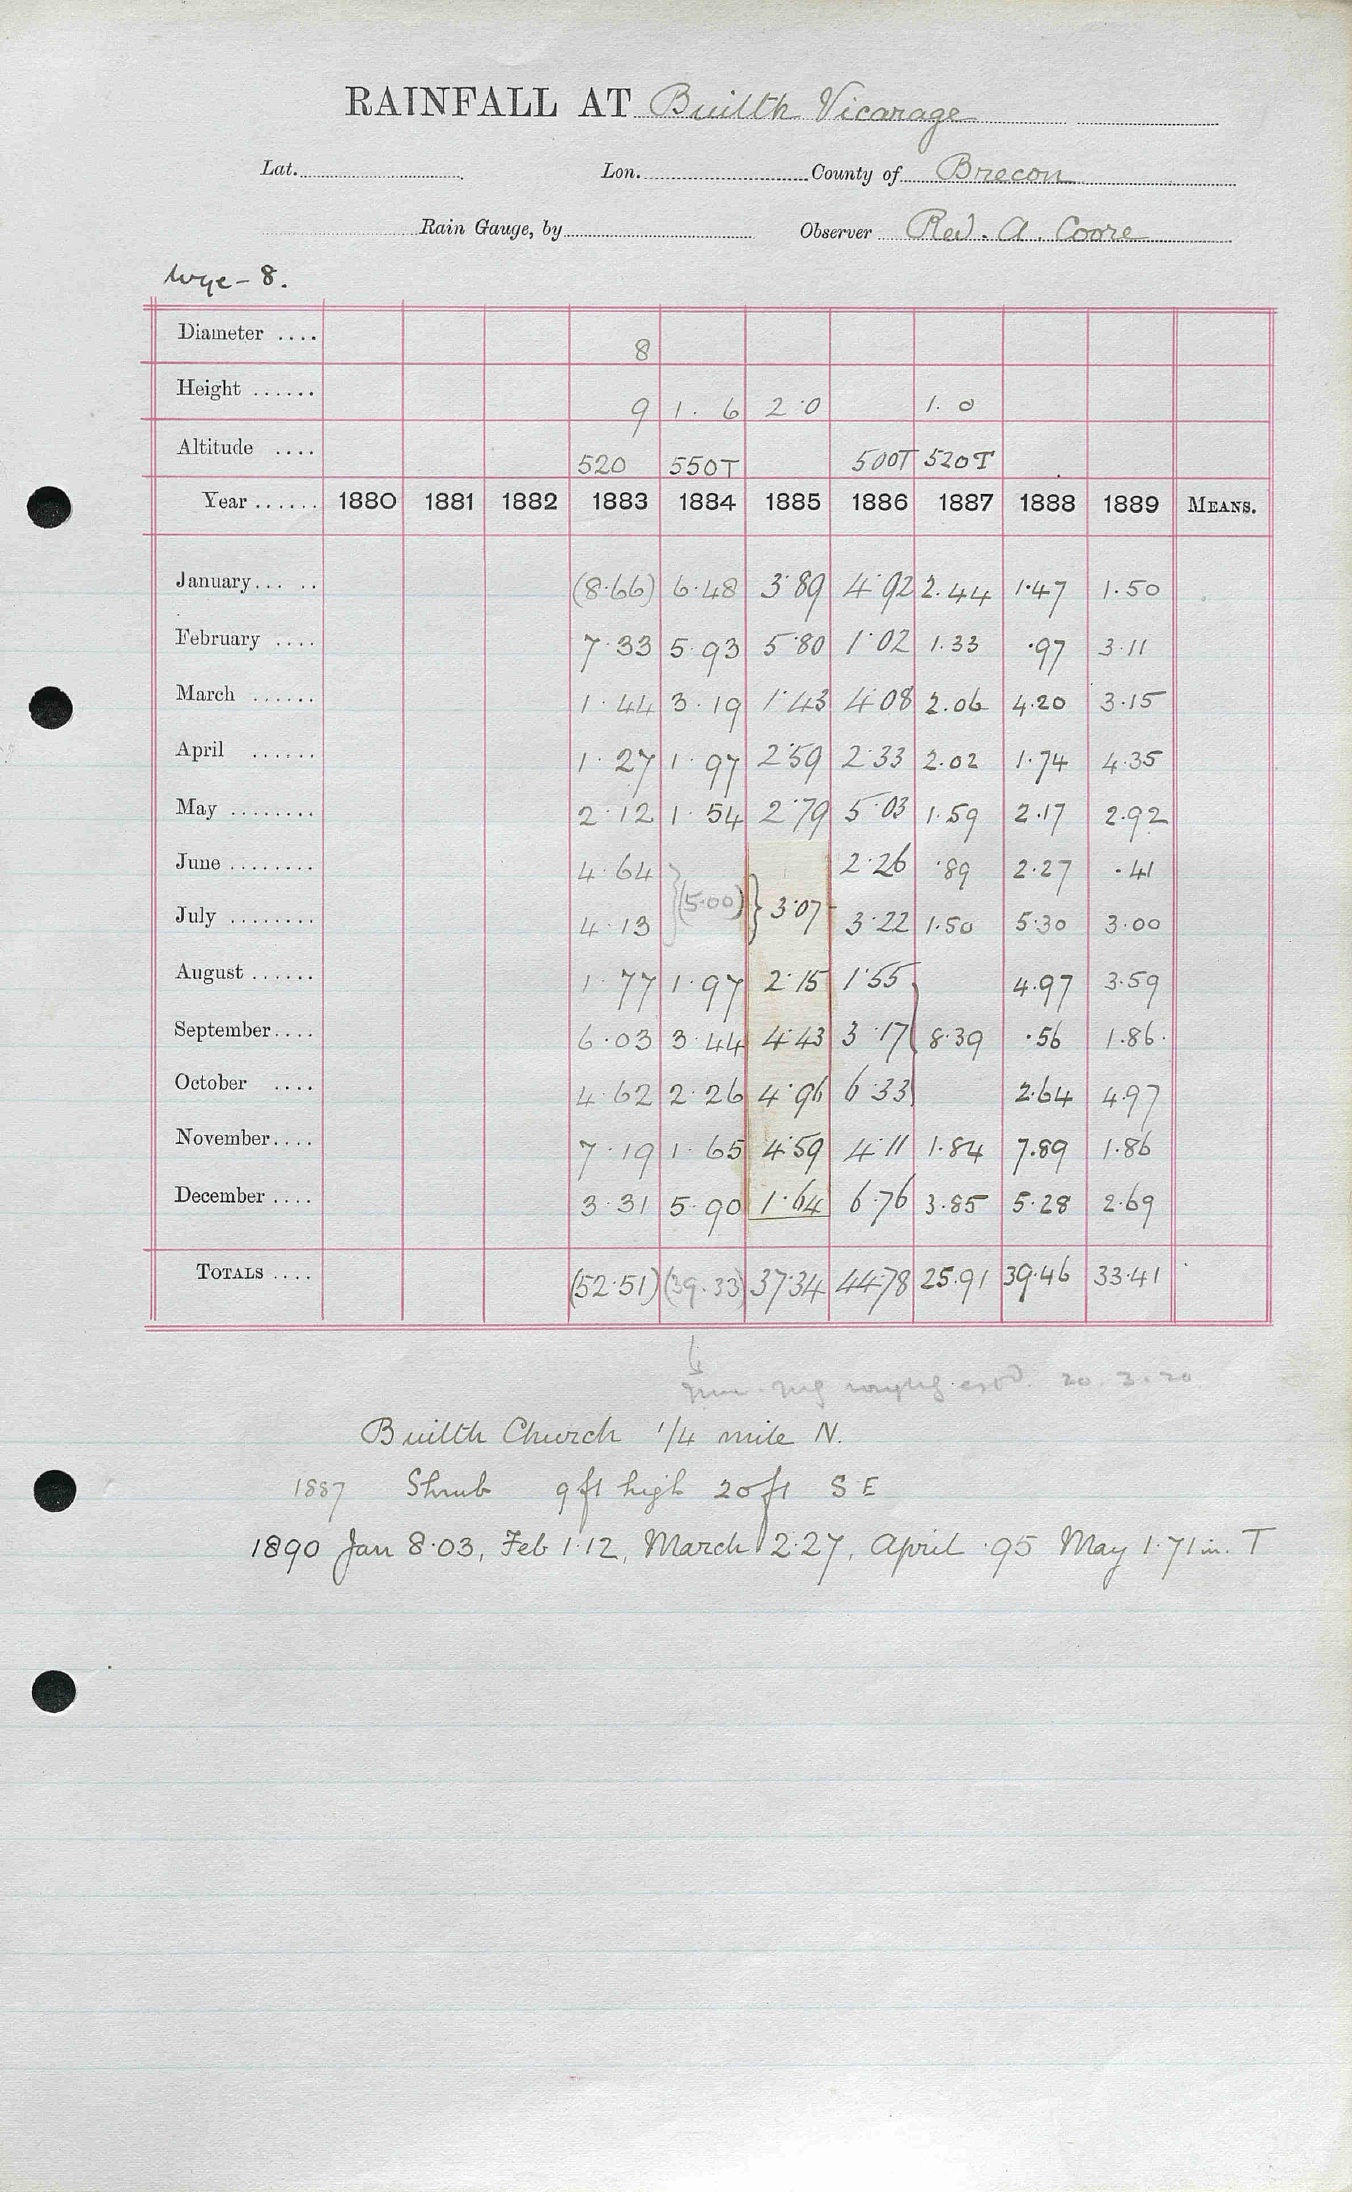 RAINFALL AT Builth Vicarage
Lat. Lon. County of Brecon
Rain Gauge, by Observer Rev. A. Coore
Wye - 8.
Diameter .... 8
Height ...... 9 1. 6 2.0 1. 0
Altitude .... 520 550T 500T 520T
Year ...... 1880 1881 1882 1883 1884 1885 1886 1887 1888 1889 MEANS.
January... .. (8.66) 6.48 3.89 4.92 2.44 1.47 1.50
February .... 7.33 5.93 5.80 1.02 1.33 .97 3.11
March ...... 1.44 3.19 1.43 4.08 2.06 4.20 3.15
April ...... 1.27 1.97 2.59 2.33 2.02 1.74 4.35
May ........ 2.12 1.54 2.79 5.03 1.59 2.17 2.92
June ........ 4.64 2.26 .89 2.27 .41
(5.00) } 3.07
July ........ 4.13 3.22 1.50 5.30 3.00
August ...... 1.77 1.97 2.15 1.55 4.97 3.59
September.... 6.03 3.44 4.43 3.17 8.39 .56 1.86.
October .... 4.62 2.26 4.96 6.33 2.64 4.97
November.... 7.19 1.65 4.59 4.11 1.84 7.89 1.86
December .... 3.31 5.90 1.64 6.76 3.85 5.28 2.69
TOTALS .... (52.51) (39.33) 37.34 44.78 25.91 39.46 33.41
20.3.20
Builth Church 1/4 mile N.
1887 Shrub 9 ft high 20 ft S E
1890 Jan 8.03, Feb 1.12, March 2.27, April .95 May 1.71 in. T